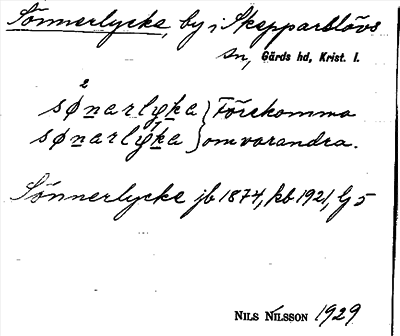 Sönnerlycke, by i Skepparslövs
sn, Gärds hd, Krist. l.
2
sønarlyka } Förekomma
sønarlyka } om varandra.
Sönnerlycke jb 1874, kb 1921, G 5
NILS NILSSON 1929